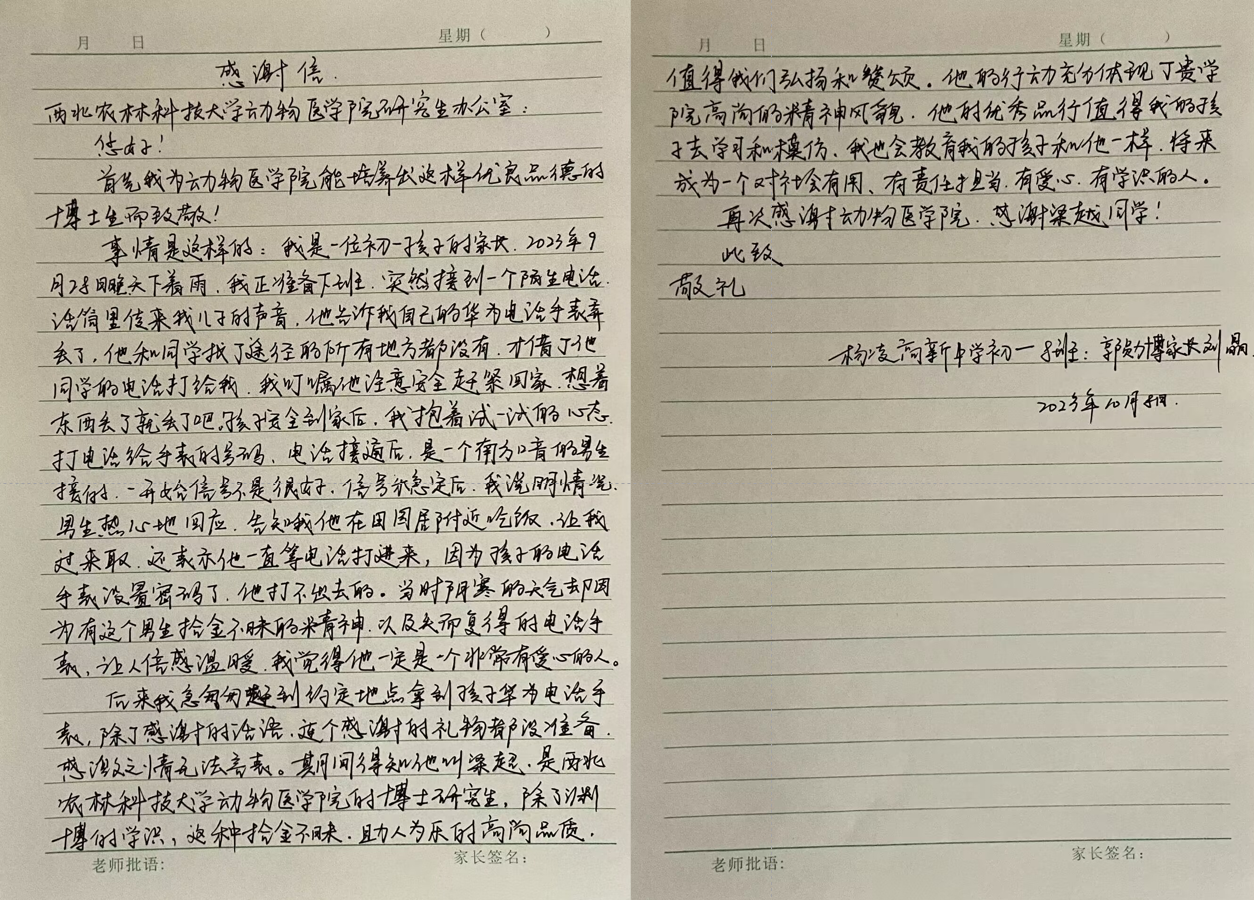 月 日 星期（ ）
感谢信.
西北农林科技大学动物医学院研究生办公室：
您好！
首先我为动物医学院能培养出这样优良品德的
博士生而致敬！
事情是这样的：我是一位初一孩子的家长.2023年9
月28日晚天下着雨.我正准备下班.突然接到一个陌生电话.
话筒里传来我儿子的声音.他告诉我自己的华为电话手表弄
丢了,他和同学找了途径的所有地方都没有.才借了他
同学的电话打给我.我叮嘱他注意安全赶紧回家.想着
东西丢了就丢了吧.孩子安全到家后.我抱着试一试的心态.
打电话给手表的号码、电话接通后.是一个南方口音的男生
接的.一开始信号不是很好.信号稳定后.我说明情况.
男生热心地回应.告知我他在田园居附近吃饭.让我
过来取.还表示他一直等电话打进来,因为孩子的电话
手表设置密码了.他打不出去的。当时阴寒的天气却因
为有这个男生拾金不昧的精神.以及失而复得的电话手
表,让人倍感温暖.我觉得他一定是一个非常有爱心的人。
后来我急匆匆赶到约定地点拿到孩子华为电话手
表,除了感谢的话语.连个感谢的礼物都没准备.
感激之情无法言表。其间得知他叫梁超.是西北
农林科技大学动物医学院的博士研究生,除了
博的学识,这种拾金不昧.助人为乐的高尚品质.
老师批语: 家长签名:
月 日 星期（ ）
值得我们弘扬和赞颂。他的行动充分体现了贵学
院高尚的精神风貌.他的优秀品行值得我的孩
子去学习和模仿.我也会教育我的孩子和他一样.将来
成为一个对社会有用、有责任担当.有爱心.有学识的人。
再次感谢动物医学院.感谢梁越同学！
此致
敬礼
杨凌高新中学初一8班：郭博家长刘
2023年10月8日.
老师批语: 家长签名: